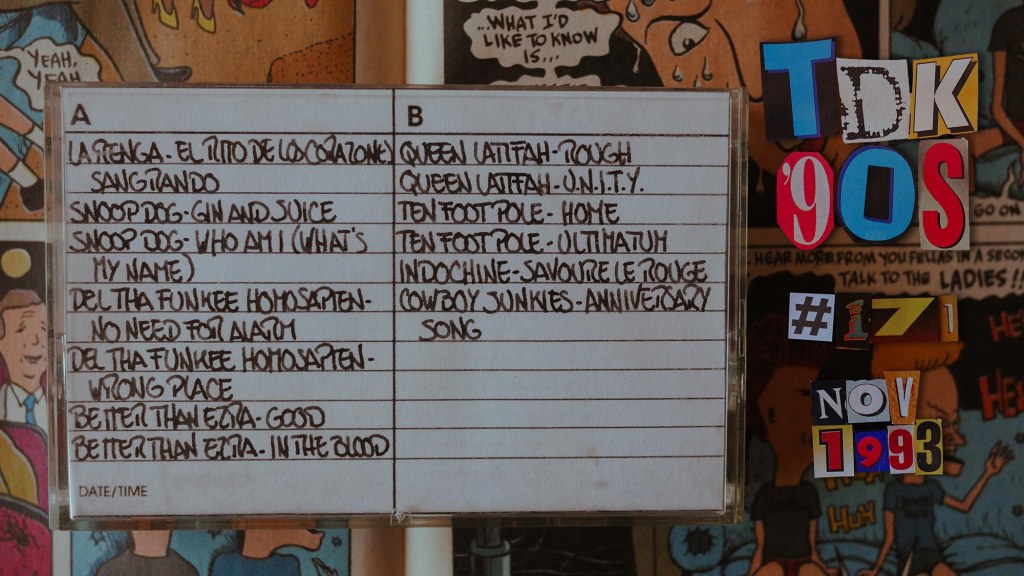 YEAH,
YEAH
...WHAT I'D
LIKE TO KNOW
IS...
A
LA RENGA - EL RITO DE LOS CORAZONES
SANGRANDO
SNOOP DOG - GIN AND JUICE
SNOOP DOG - WHO AM I (WHAT'S
MY NAME)
DEL THA FUNKEE HOMOSAPIEN -
NO NEED FOR ALARM
DEL THA FUNKEE HOMOSAPIEN -
WRONG PLACE
BETTER THAN EZRA - GOOD
BETTER THAN EZRA - IN THE BLOOD
DATE/TIME
B
QUEEN LATIFAH - ROUGH
QUEEN LATIFAH - U.N.I.T.Y.
TEN FOOT POLE - HOME
TEN FOOT POLE - ULTIMATUM
INDOCHINE - SAVOURE LE ROUGE
COWBOY JUNKIES - ANNIVERSARY
SONG
TDK
'90S
#171
NOV
1993
GO ON
HEAR MORE FROM YOU FELLAS IN A SECON
TALK TO THE LADIES!!
HUH
HUH